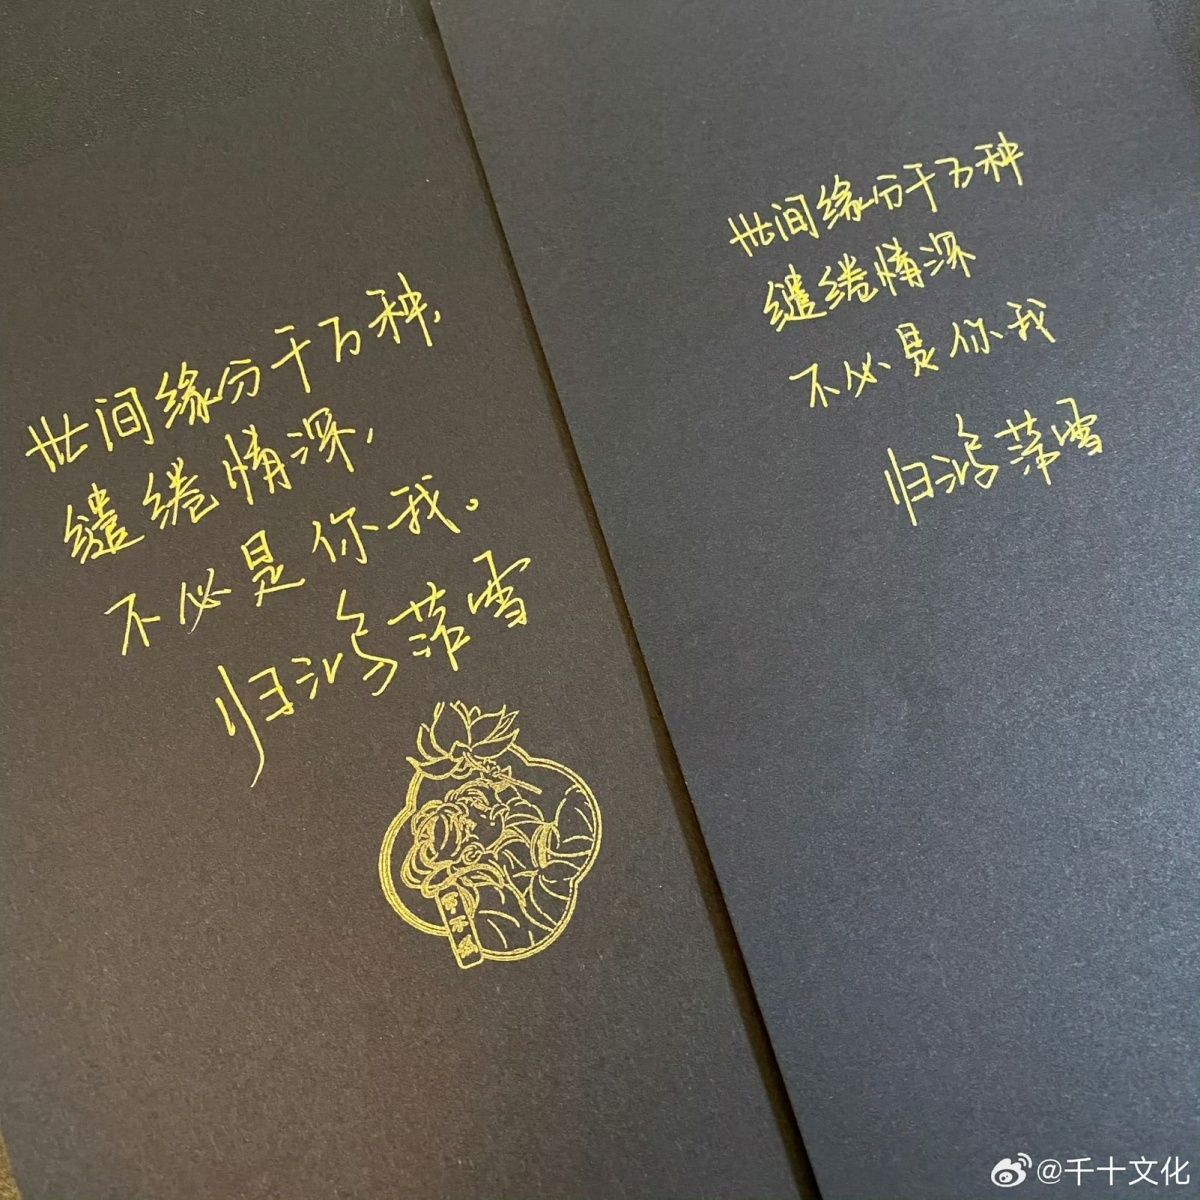 世间缘分千万种,
缱绻情深,
不必是你我。
归鸿落雪
世间缘分千万种
缱绻情深
不必是你我
归鸿落雪
@千十文化